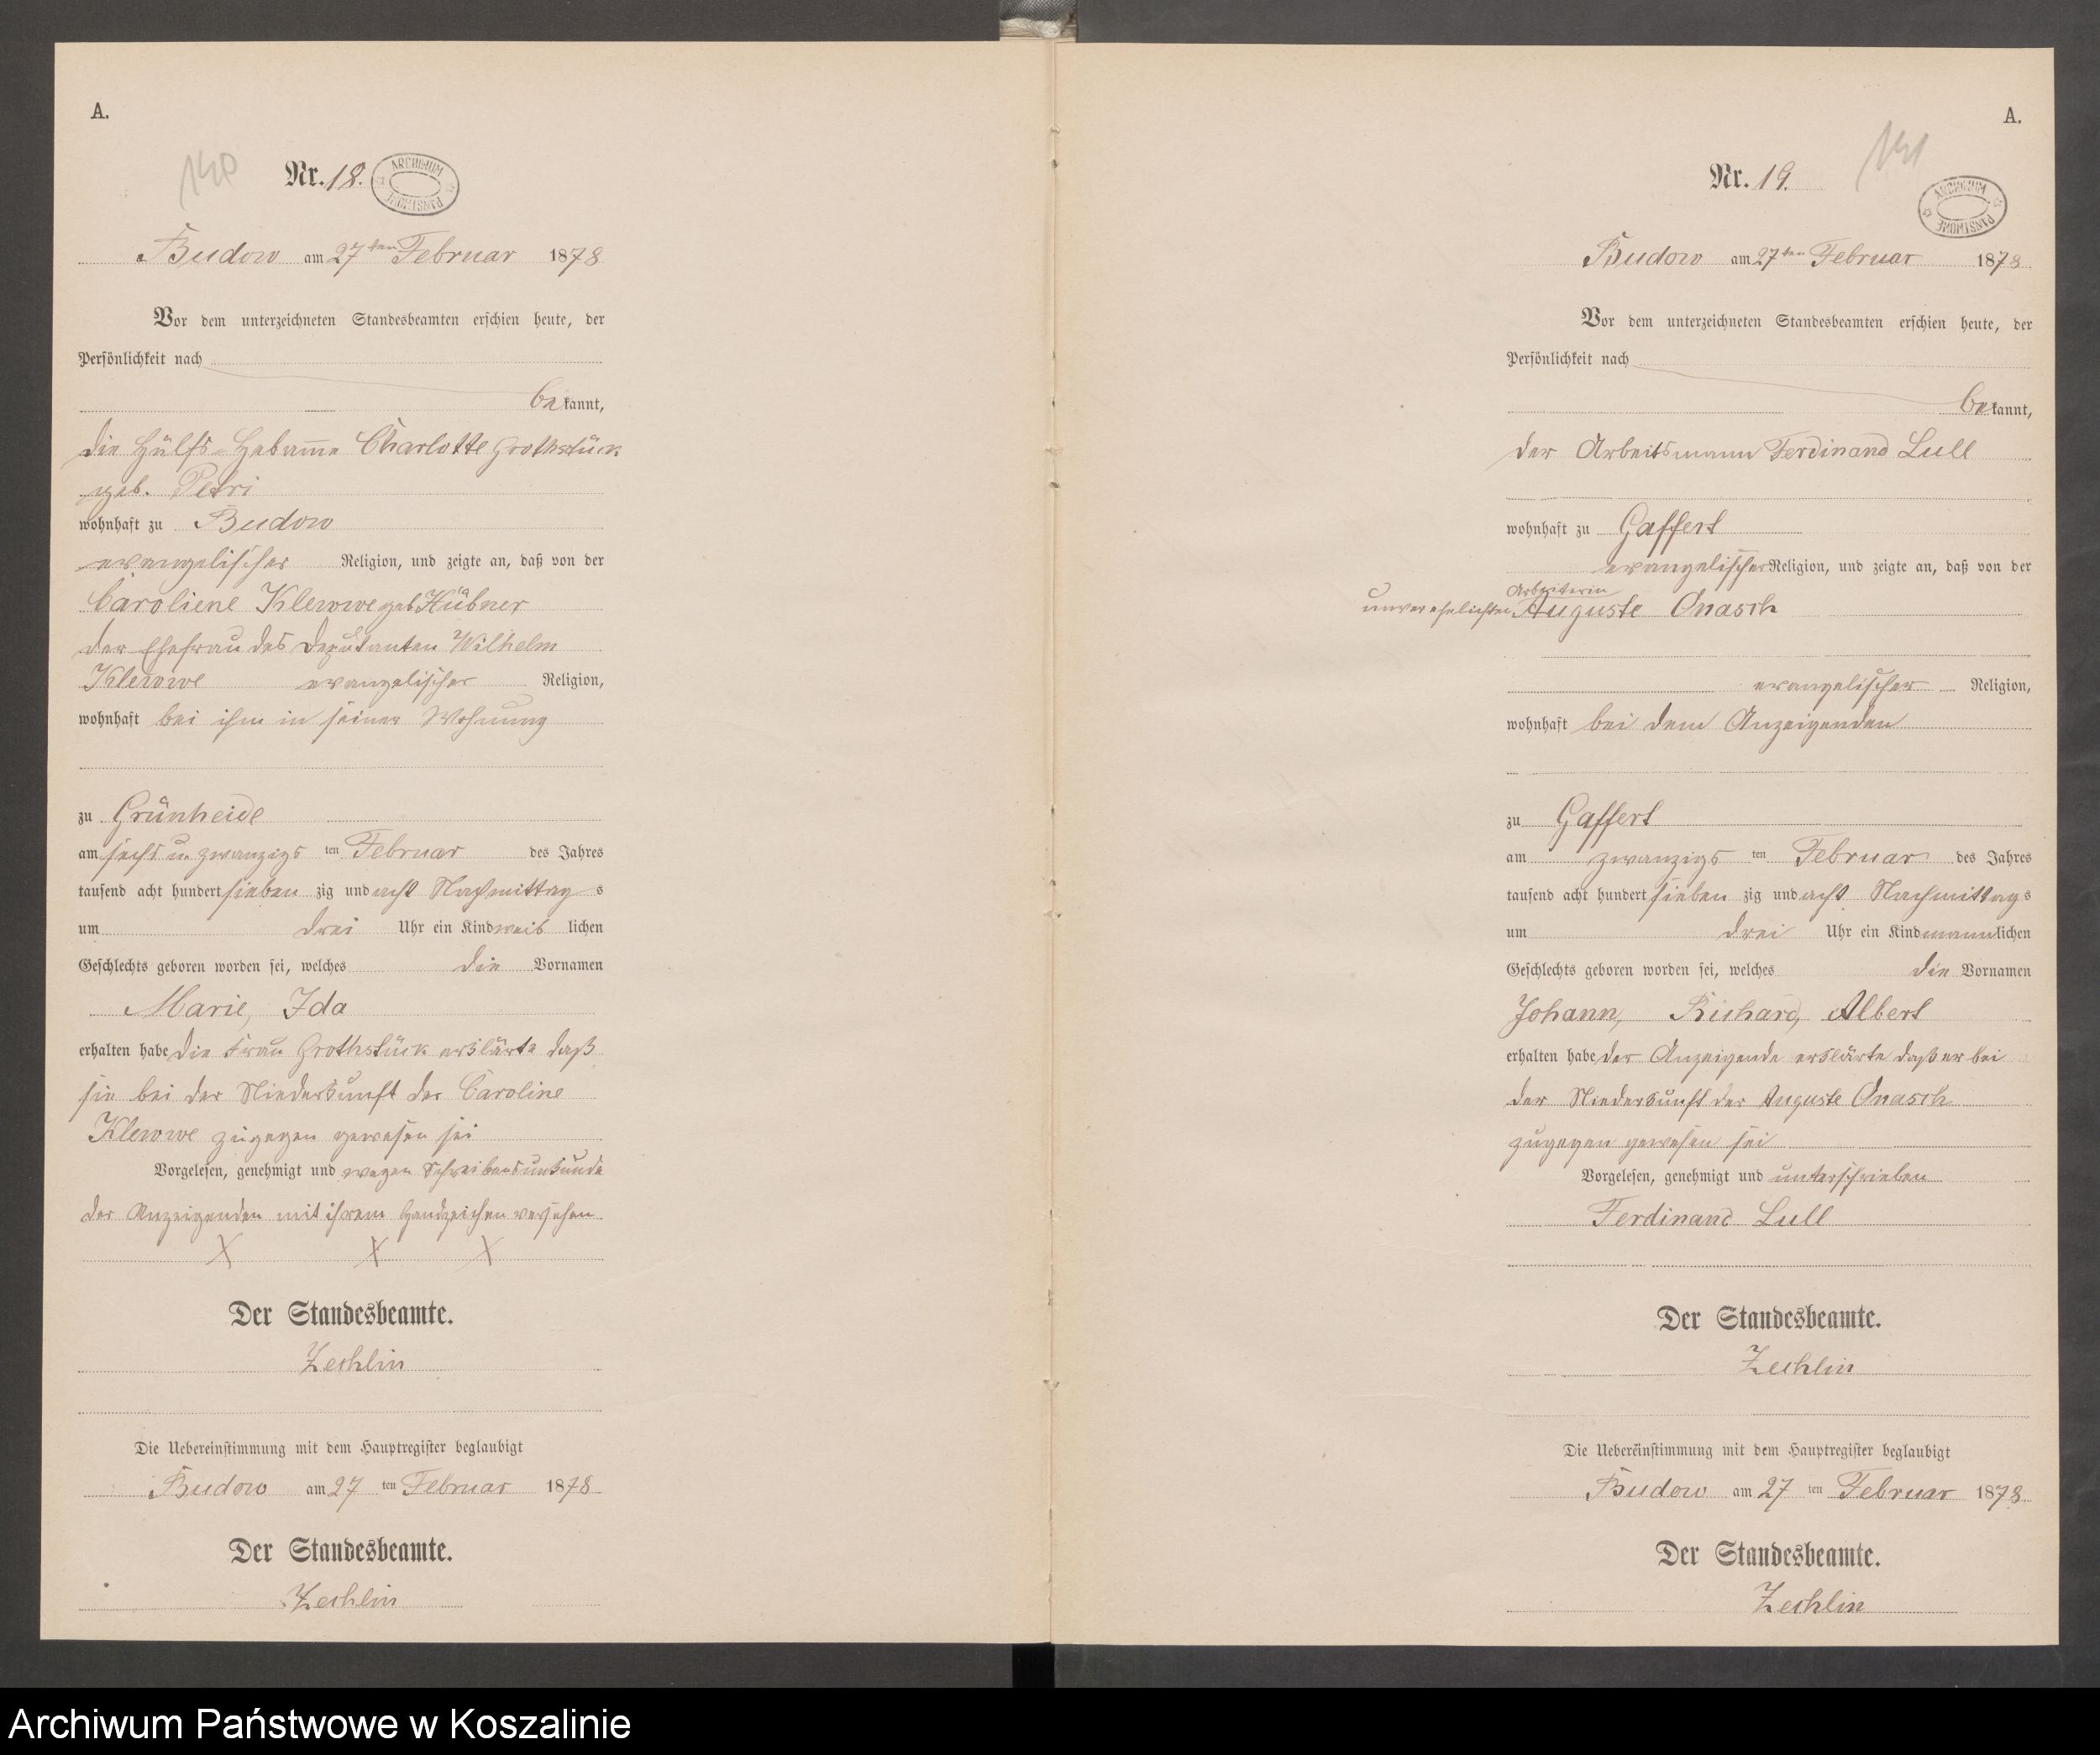 A.
140
Nr. 18.
ARCHIWUM PAŃSTWOWE
Budow am 27ten Februar 1878
Vor dem unterzeichneten Standesbeamten erschien heute, der
Persönlichkeit nach
bekannt,
die Hülfs-Hebamme Charlotte Grothstück
geb. Petri
wohnhaft zu Budow
evangelischer Religion, und zeigte an, daß von der
Caroliene Klewwe geb Hübner
der Ehefrau des Deputanten Wilhelm
Klewwe evangelischer Religion,
wohnhaft bei ihm in seiner Wohnung
zu Grünheide
am sechs u. zwanzigs ten Februar des Jahres
tausend acht hundert sieben zig und acht Nachmittag s
um drei Uhr ein Kind weib lichen
Geschlechts geboren worden sei, welches die Vornamen
Marie, Ida
erhalten habe die Frau Grothstück erklärte daß
sie bei der Niederkunft der Caroline
Klewwe zugegen gewesen sei
Vorgelesen, genehmigt und wegen Schreibensunkunde
der Anzeigenden mit ihrem Handzeichen versehen
X X X
Der Standesbeamte.
Zechlin
Die Uebereinstimmung mit dem Hauptregister beglaubigt
Budow am 27 ten Februar 1878
Der Standesbeamte.
Zechlin
A.
141
Nr. 19.
ARCHIWUM PAŃSTWOWE
Budow am 27ten Februar 1878
Vor dem unterzeichneten Standesbeamten erschien heute, der
Persönlichkeit nach
bekannt,
der Arbeitsmann Ferdinand Lull
wohnhaft zu Gaffert
evangelischer Religion, und zeigte an, daß von der
Arbeiterin
unverehelichten Auguste Onasch
evangelischer Religion,
wohnhaft bei dem Anzeigenden
zu Gaffert
am zwanzigs ten Februar des Jahres
tausend acht hundert sieben zig und acht Nachmittag s
um drei Uhr ein Kind mannlichen
Geschlechts geboren worden sei, welches die Vornamen
Johann, Richard, Albert
erhalten habe der Anzeigende erklärte daß er bei
der Niederkunft der Auguste Onasch
zugegen gewesen sei
Vorgelesen, genehmigt und unterschrieben
Ferdinand Lull
Der Standesbeamte.
Zechlin
Die Uebereinstimmung mit dem Hauptregister beglaubigt
Budow am 27 ten Februar 1878
Der Standesbeamte.
Zechlin
Archiwum Państwowe w Koszalinie